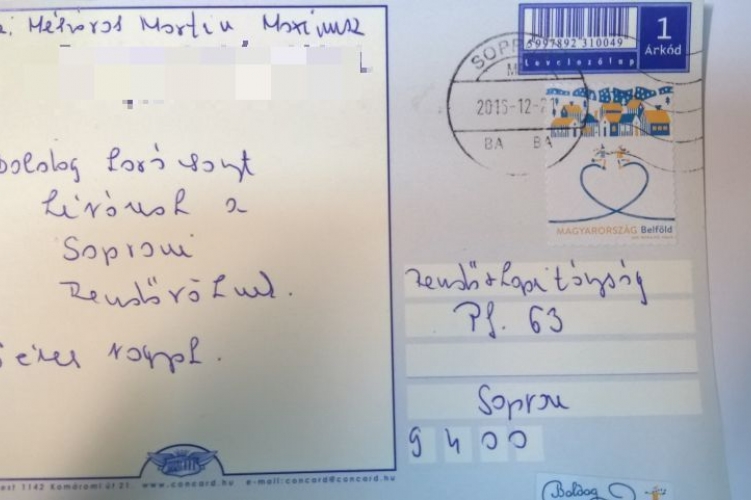 Mészáros Martin Maximusz
Boldog Karácsonyt
kívánok a
Soproni
Rendőröknek.
1
Árkód
5997892 310049
Levelezőlap
SOPR
2015-12-
BA BA
MAGYARORSZÁG Belföld
Rendőrkapitányság
Pf. 63
Sopron
9400
1142 Komáromi út 21. www.concord.hu e-mail:concord@concord.hu
Boldog